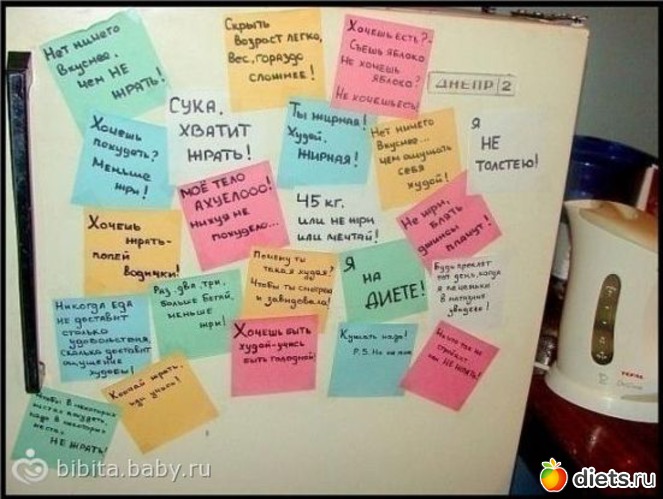 Нет ничего
вкуснее,
чем НЕ
ЖРАТЬ!
Скрыть
возраст легко,
вес, гораздо
сложнее!
Хочешь есть?-
Съешь яблоко
Не хочешь
яблоко?
Не хочешь есть!
ДНЕПР 2
Хочешь
похудать?
Меньше
жри!
СУКА,
ХВАТИТ
ЖРАТЬ!
Ты жирная!
Худей,
ЖИРНАЯ!
Нет ничего
вкуснее...
чем ощущать
себя
худой!
Я
НЕ
ТОЛСТЕЮ!
МОЁ ТЕЛО
АХУЕЛООО!
нихуя не
похудело...
45 кг.
или не жри
или мечтай!
Не жри, блять
джинсы
плачут!
Хочешь
жрать-
попей
водички!
Раз, два, три,
больше бегай,
меньше
жри!
Почему ты
такая худая?
Чтобы ты смотрела
и завидовала!
Я
НА
ДИЕТЕ!
Будь проклят
тот день, когда
я печеньки
в магазине
увидела!
Никогда еда
не доставит
столько
удовольствия,
сколько доставит
ощущение
худобы!
Хочешь быть
худой-учись
быть голодной!
Кушать надо!
P.S. Но не
Ничто так не
стройнит
как НЕ ЖРАТЬ!
Кончай жрать,
иди учись!
Чтобы в некоторых
местах похудеть,
надо в некоторых
местах
НЕ ЖРАТЬ!
TEFAL
bibita.baby.ru
diets.ru